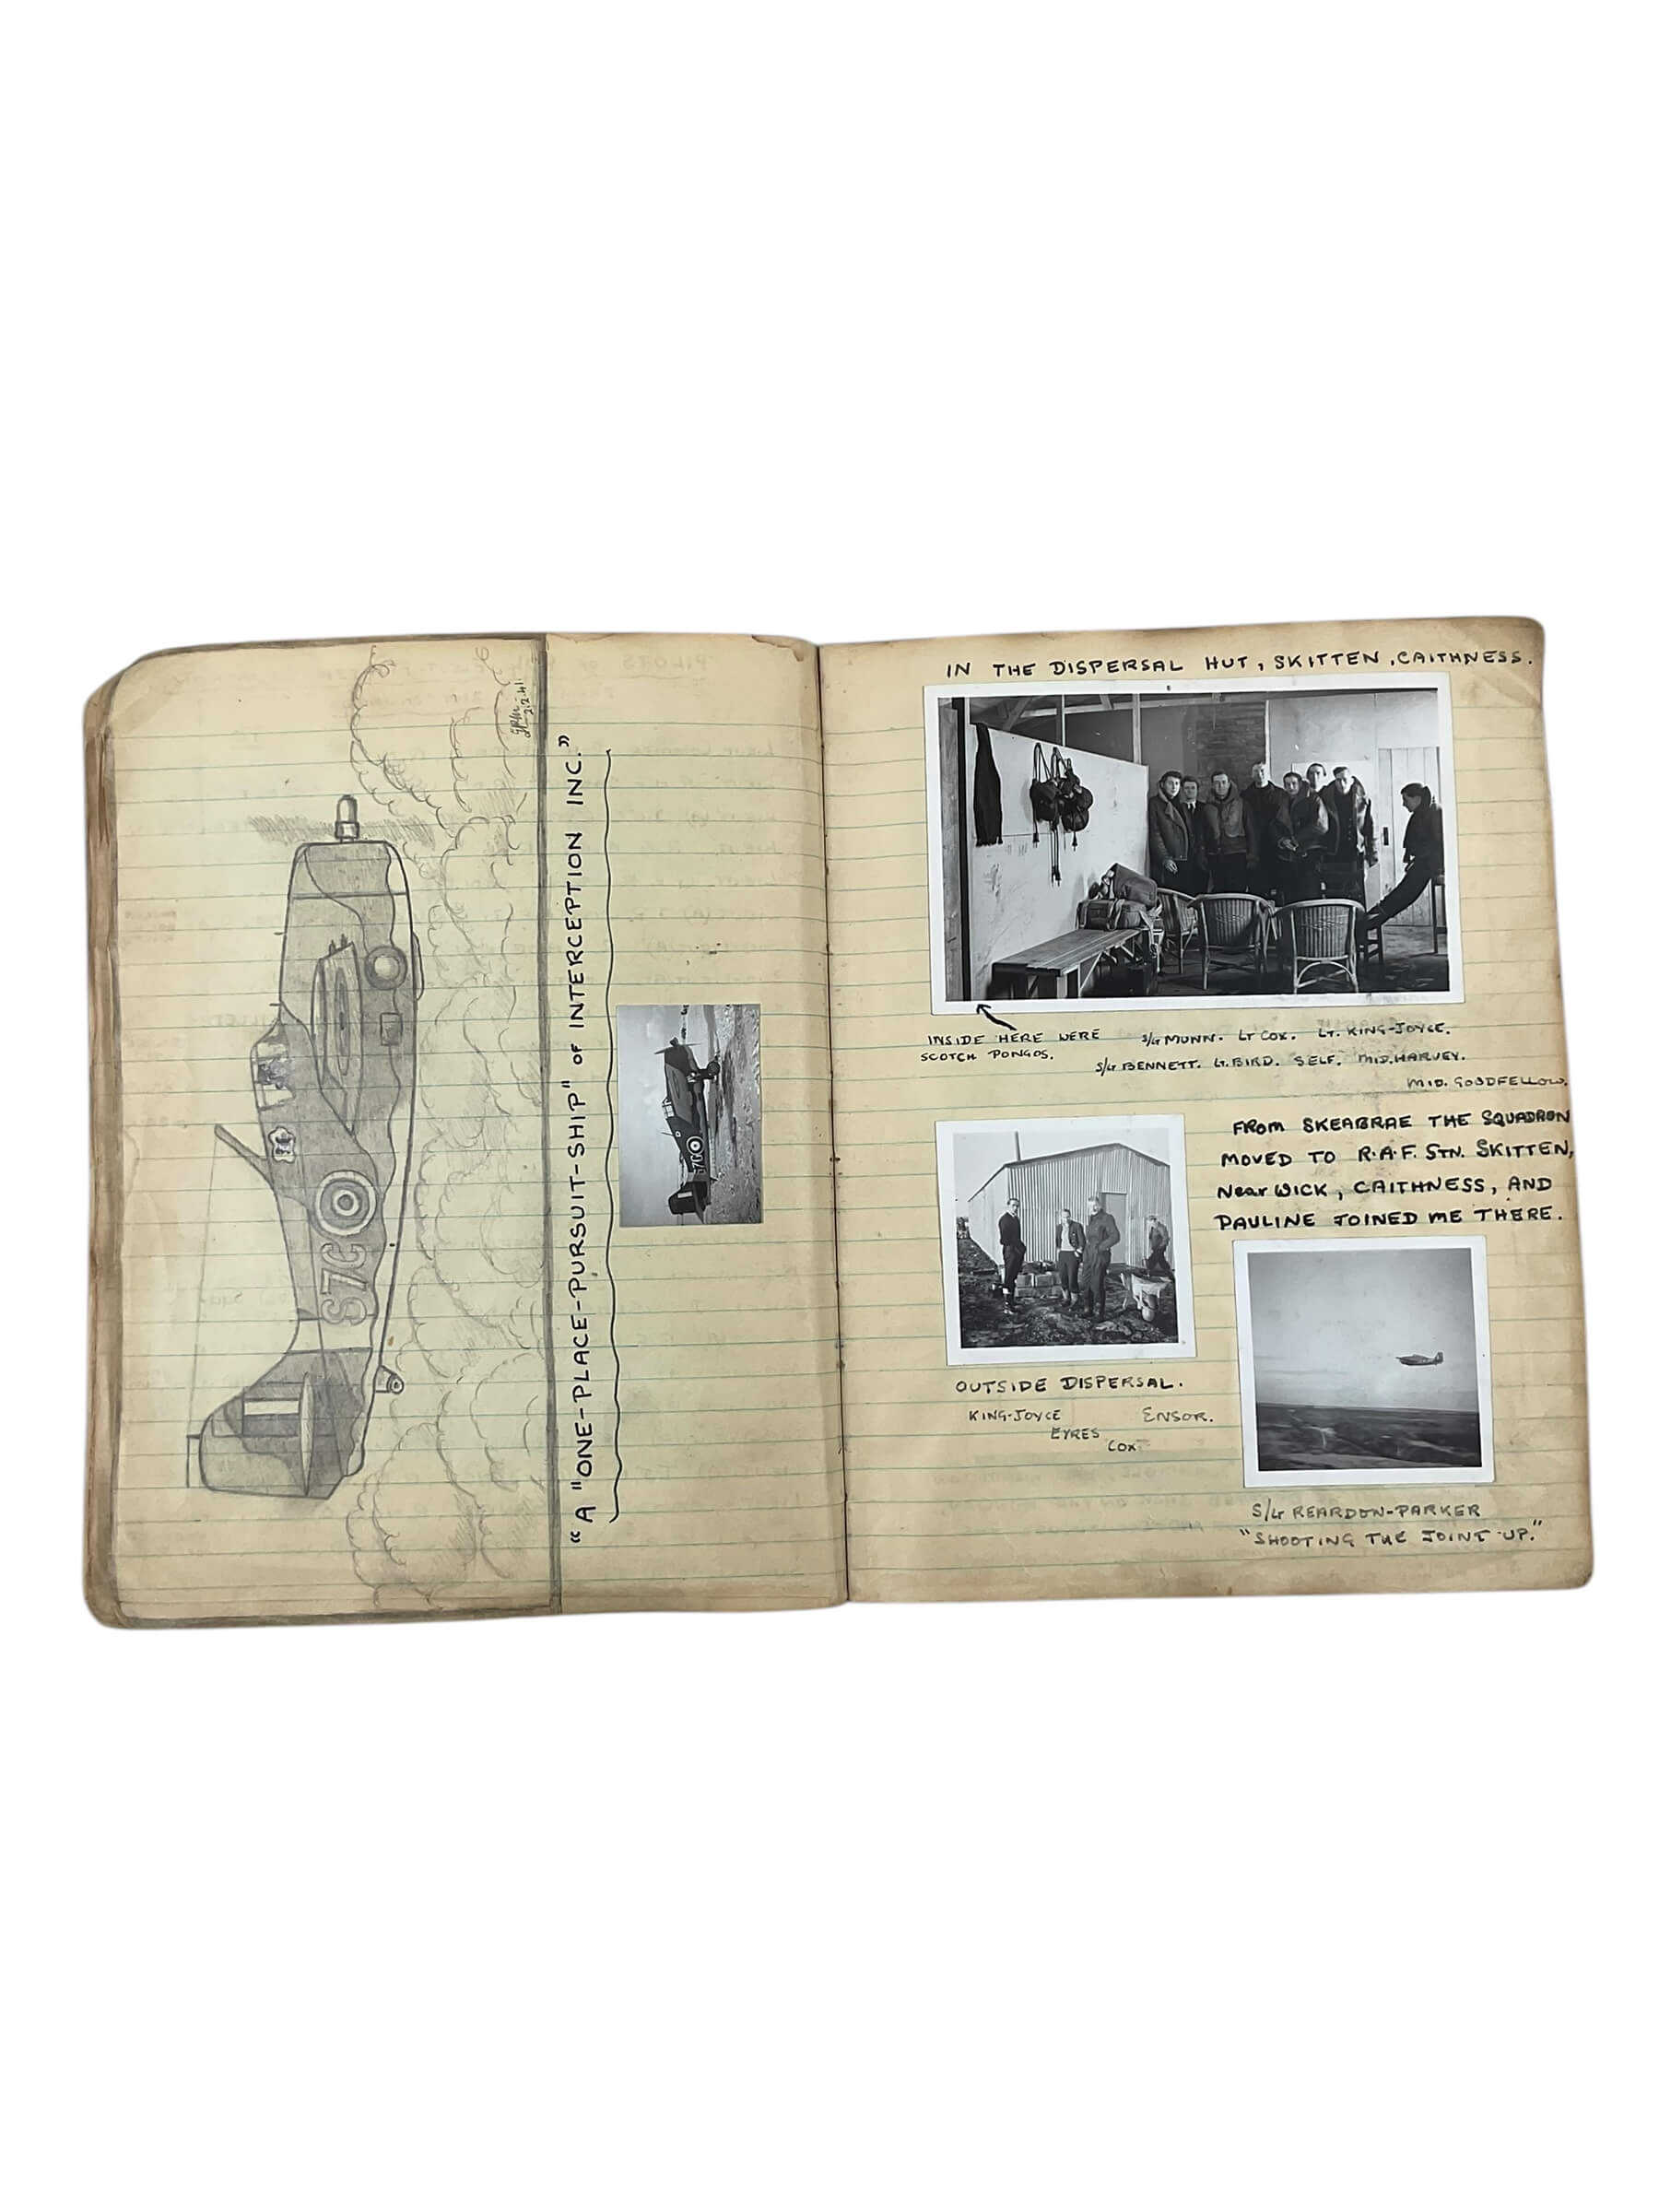 2.2.41
S7G
"A "ONE-PLACE-PURSUIT-SHIP" OF INTERCEPTION INC."
S7G
IN THE DISPERSAL HUT, SKITTEN, CAITHNESS.
INSIDE HERE WERE
SCOTCH PONGOS.
S/Lt MUNN. Lt COX. Lt. KING-JOYCE.
S/Lt BENNETT. Lt. BIRD. SELF. MID. HARVEY.
MID. GOODFELLOW.
FROM SKEABRAE THE SQUADRON
MOVED TO R.A.F. STN. SKITTEN,
Near WICK, CAITHNESS, AND
PAULINE JOINED ME THERE.
OUTSIDE DISPERSAL.
KING-JOYCE ENSOR.
EYRES
COX
S/Lt REARDON-PARKER
"SHOOTING THE JOINT UP."